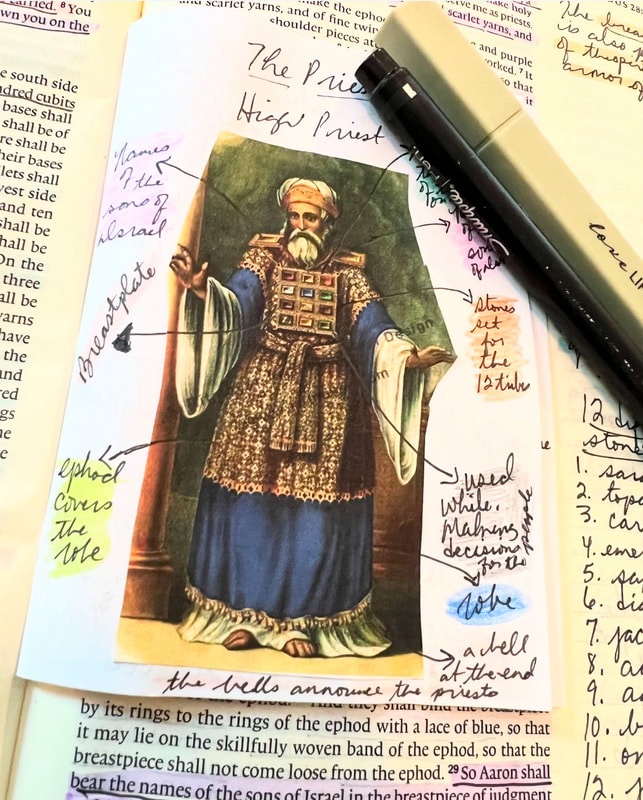 arried. ⁸ You
wn you on the
e south side
ndred cubits
bases shall
shall be of
re shall be
heir bases
llets shall
vest side
and ten
shall be
hall be
On the
three
all be
yarns
have
the
and
red
ngs
he
e
make the ephod
serve me as priests.
and scarlet yarns, and of fine twin
scarlet yarns, and
shoulder pieces
and purple
worked. ⁷ It
so that
it
The Pries
High Priest
Names
of the
sons of
Israel
Breastplate
ephod
covers
the
robe
stones
set
for
the
12 tribe
used
while
making
decisions
for the people
robe
a bell
at the end
the bells announce the priests
Design
The brea
is also
of
armor of
love
12
stone
1. sar
2. topa
3. car
4. eme
5. sa
6. di
7. jac
8. a
9. a
10. b
11. on
12.
ephod. And they shall bind the breastpiece
by its rings to the rings of the ephod with a lace of blue, so that
it may lie on the skillfully woven band of the ephod, so that the
breastpiece shall not come loose from the ephod. ²⁹ So Aaron shall
bear the names of the sons of Israel in the breastpiece of judgment